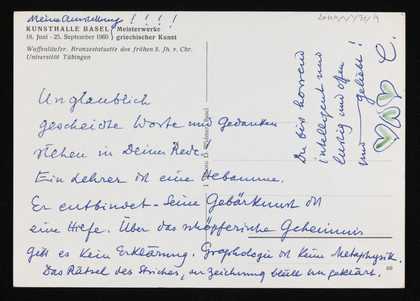 Meine Ausstellung ! ! ! !
KUNSTHALLE BASEL Meisterwerke
18. Juni - 25. September 1960 griechischer Kunst
Waffenläufer. Bronzestatuette des frühen 5. Jh. v. Chr.
Universität Tübingen
Unglaublich
gescheidte Worte und Gedanken
stehen in Deiner Rede.
Ein Lehrer ist eine Hebamme.
Er entbindet - seine Gebärkunst ist
eine Hilfe. Über das schöpferische Geheimnis
gibt es kein Erklärung. Graphologie ist keine Metaphysik.
Das Rätsel des Striches, der Zeichnung bleibt ungeklärt.
Du bist horrend
intelligent und
lustig und offen
und geliebt!
C.